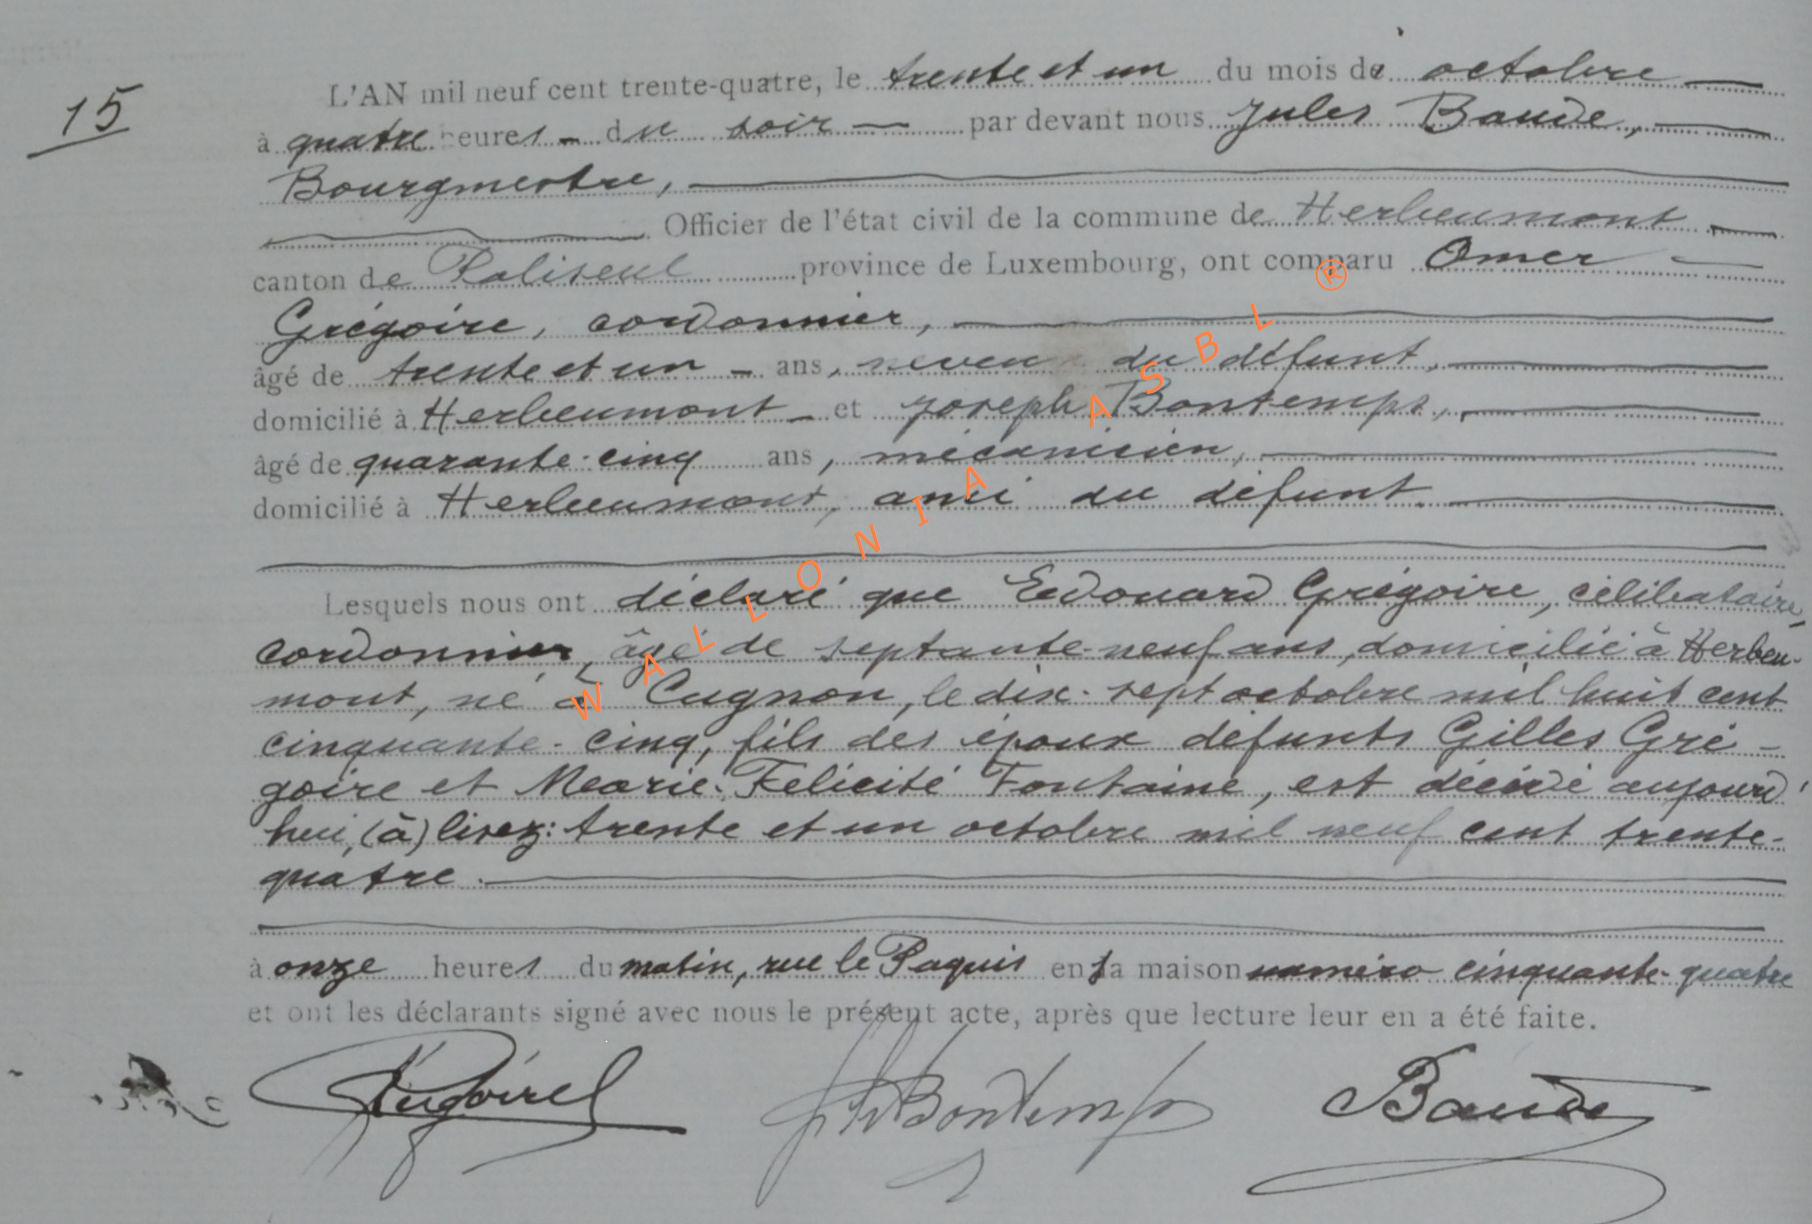 15
L'AN mil neuf cent trente-quatre, le trente et un du mois de octobre
à quatre heures du soir par devant nous Jules Baude,
Bourgmestre,
Officier de l'état civil de la commune de Herbeumont
canton de Paliseul province de Luxembourg, ont comparu Omer
Grégoire, cordonnier,
âgé de trente et un ans, neveu du défunt,
domicilié à Herbeumont et Joseph Bontemps,
âgé de quarante-cinq ans, mécanicien,
domicilié à Herbeumont, ami du défunt.
Lesquels nous ont déclaré que Edouard Grégoire, célibataire,
cordonnier, âgé de septante-neuf ans, domicilié à Herbeu-
mont, né à Cugnon, le dix-sept octobre mil huit cent
cinquante-cinq, fils des époux défunts Gilles Gré-
goire et Marie-Félicité Fontaine, est décédé aujourd'
hui, (à) lisez: trente et un octobre mil neuf cent trente-
quatre.
à onze heures du matin, rue le Paquis en sa maison numéro cinquante-quatre
et ont les déclarants signé avec nous le présent acte, après que lecture leur en a été faite.
Bontemps Baude
WALLONIA ASBL ®